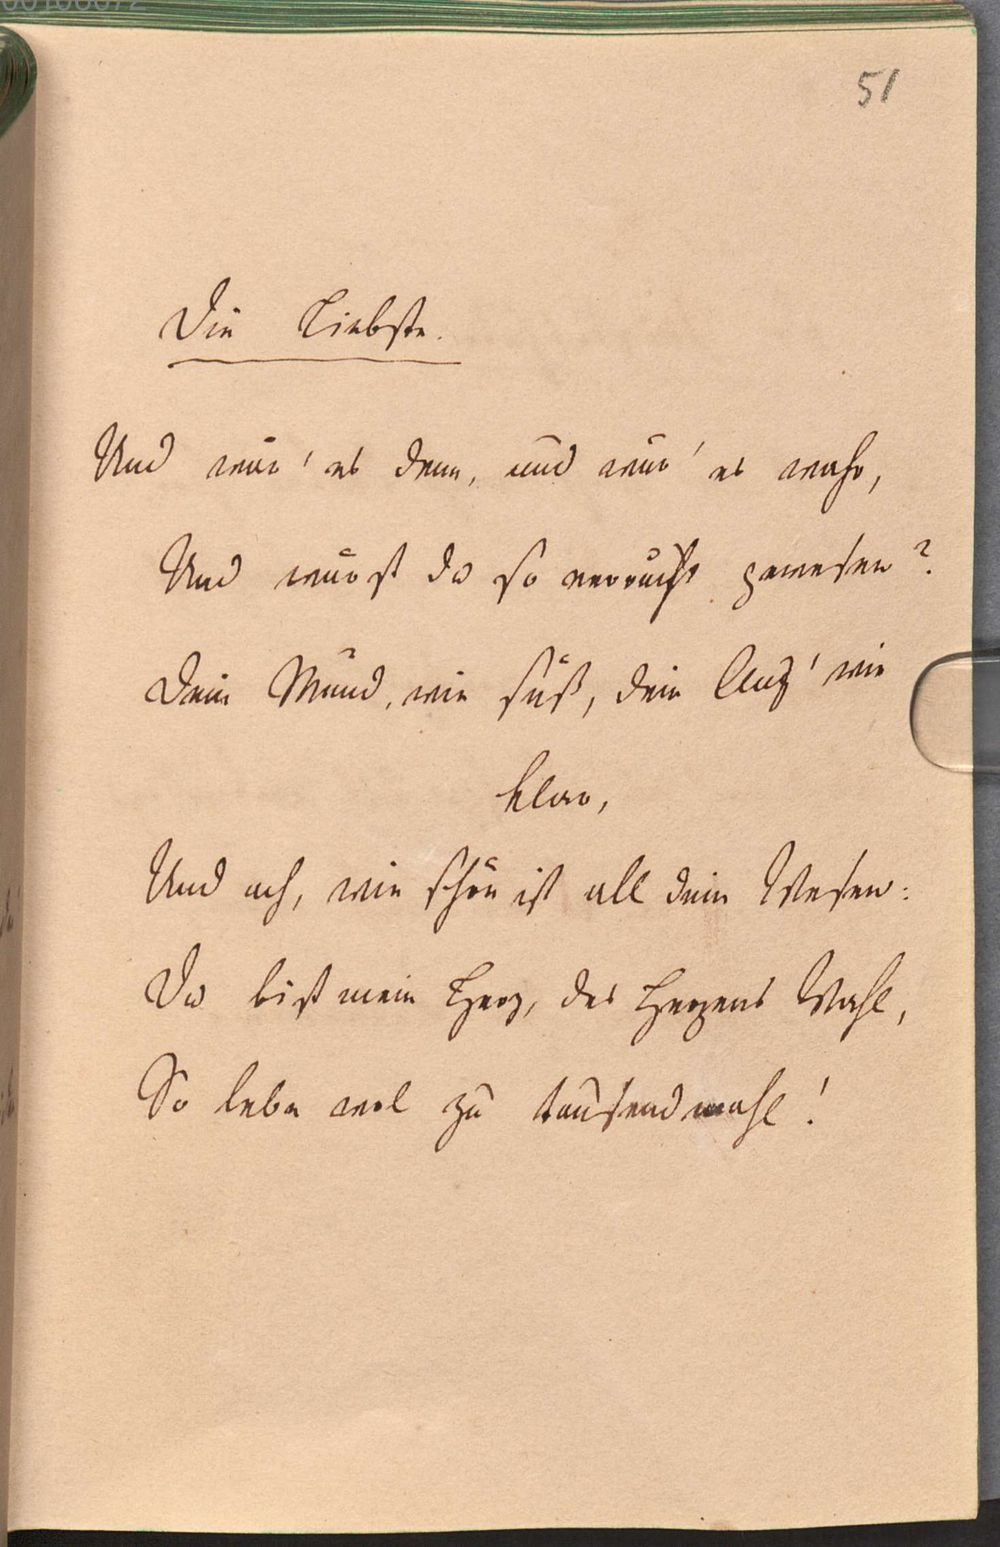 00106072
51
Die Liebste.
Und wär' es denn, und wär' es wahr,
Und wärst du so verrucht gewesen?
Dein Mund, wie süß, dein Aug' wie
klar,
Und ach, wie schön ist all dein Wesen:
Du bist mein Herz, des Herzens Wahl,
So lebe wol zu tausendmahl!